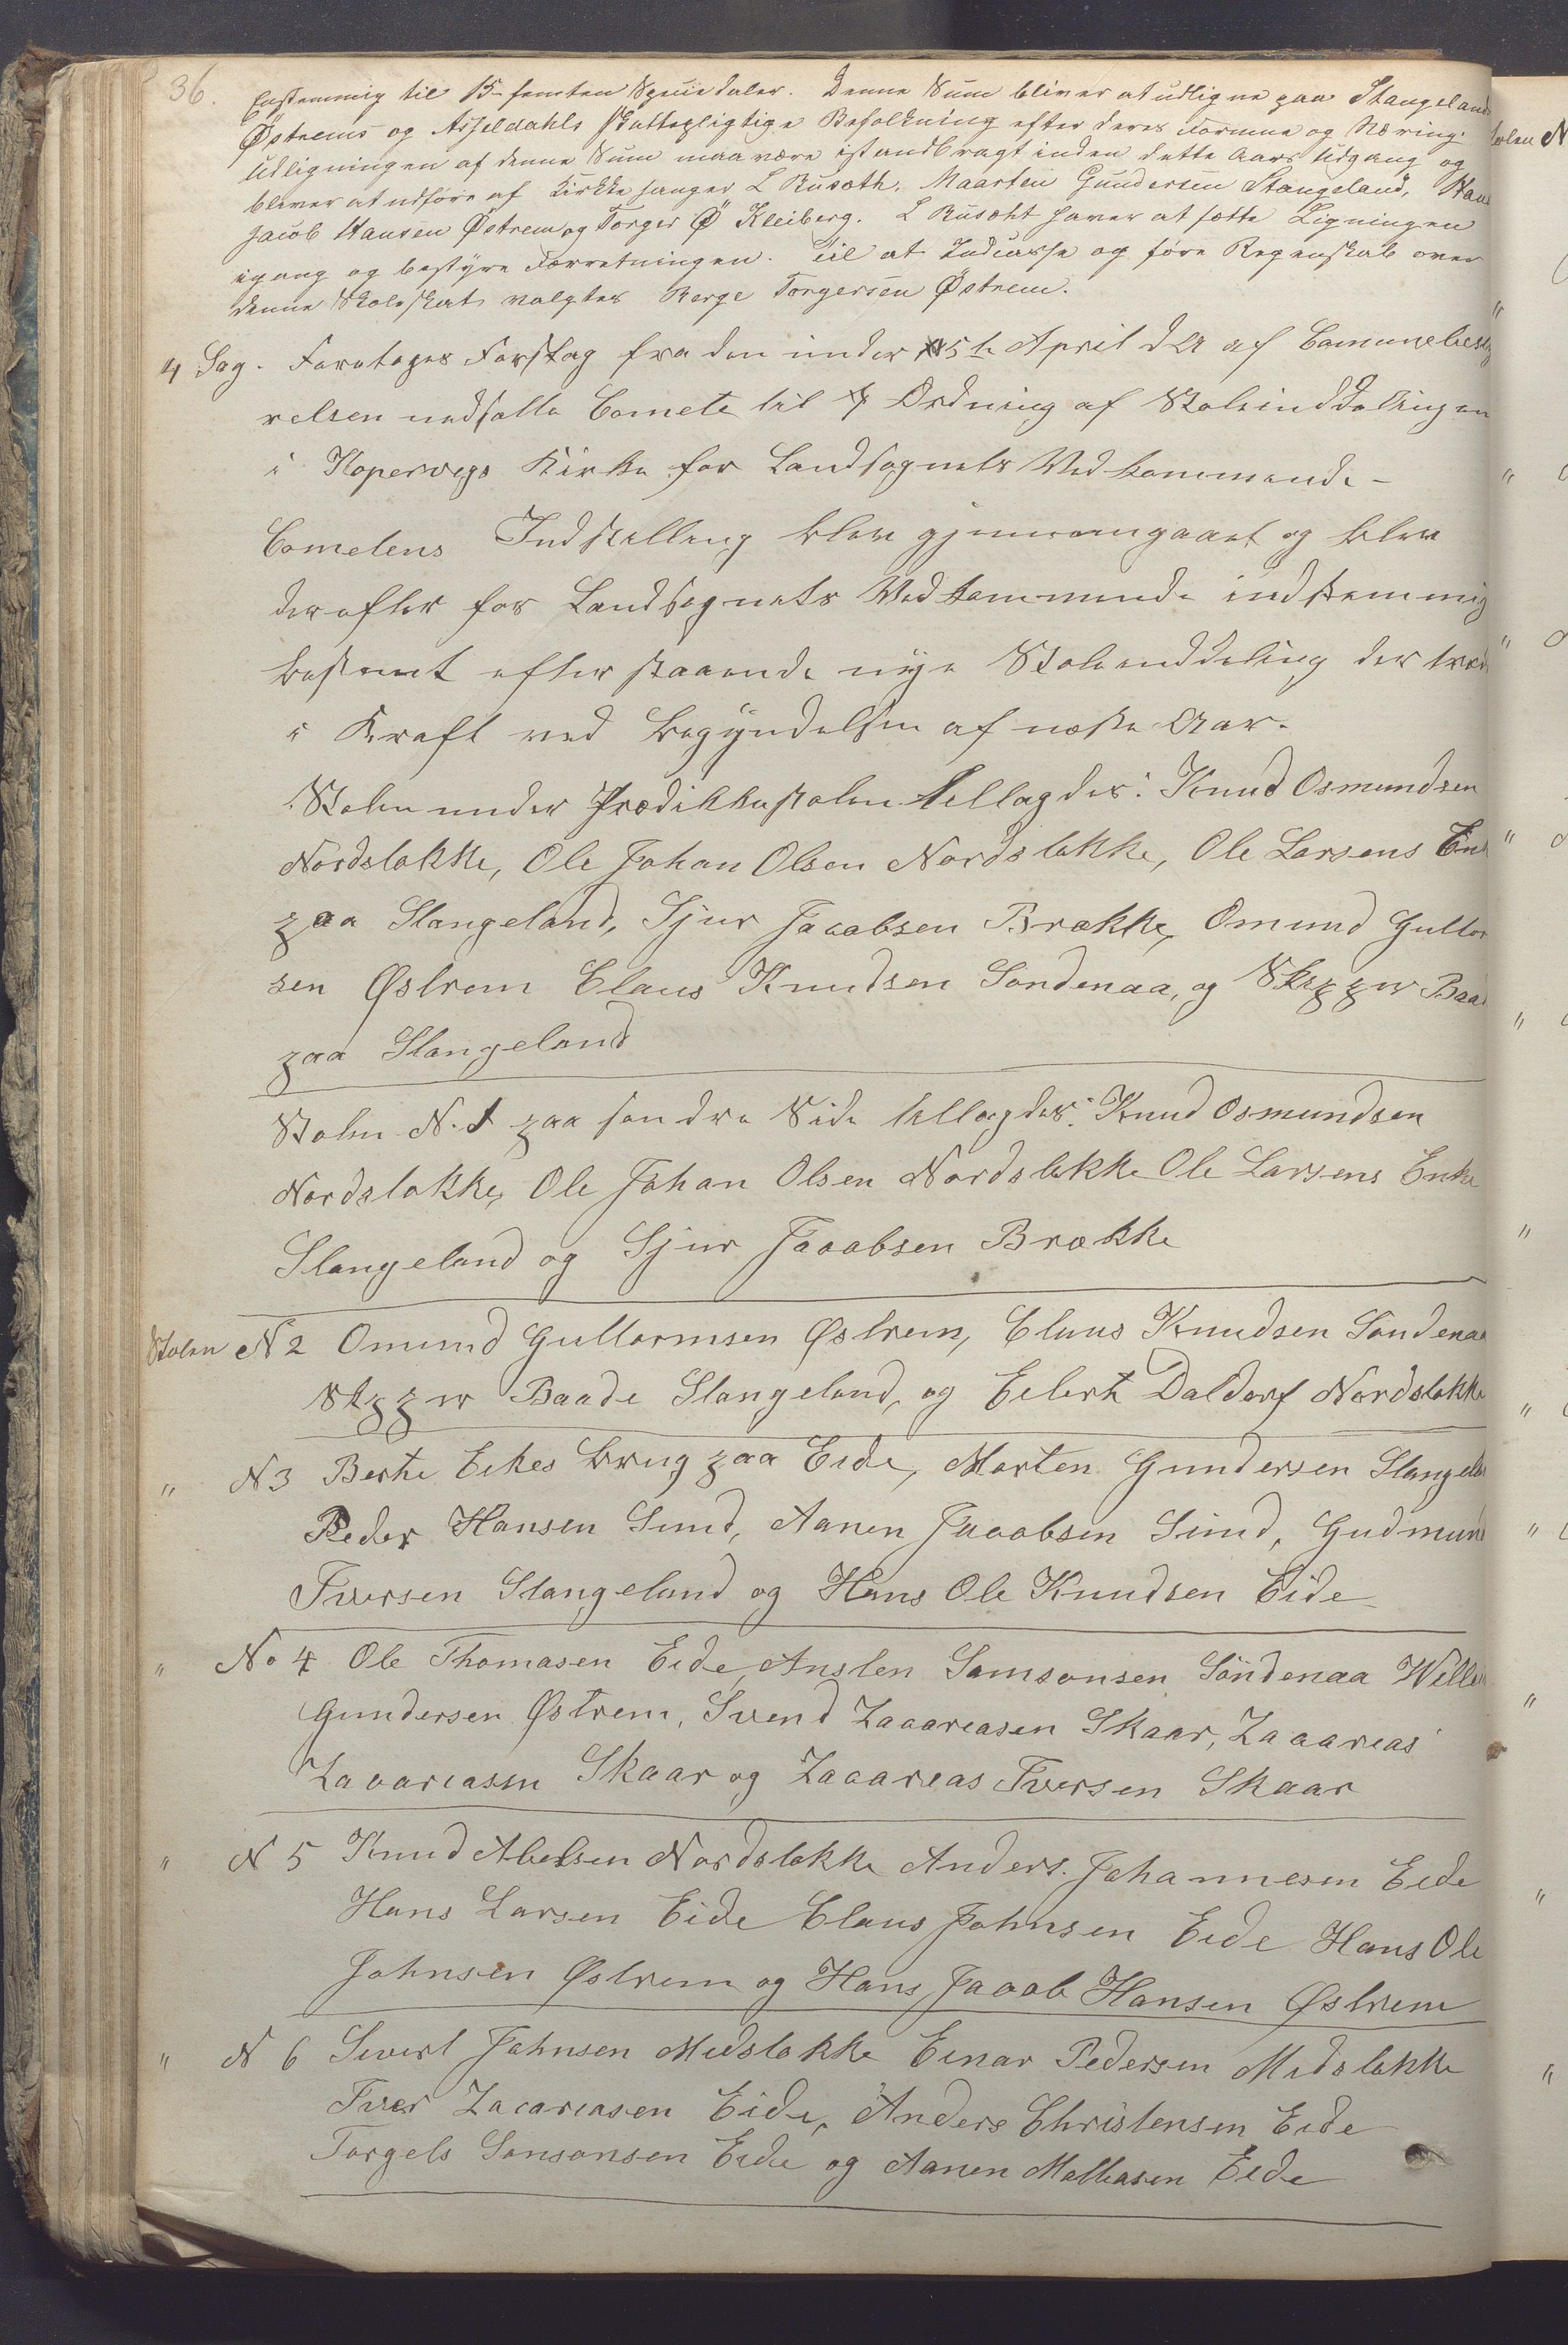 36.
Enstemmig til 15 femten Speciedaler. Denne Sum bliver at udligne paa Stangeland
Østrems og Asseldahls skattepligtige Befolkning efter deres Formue og Næring.
Udligningen af denne Sum maa være istandbragt inden dette Aars Udgang og
bliver at udføre af Kirkesanger L Rusæth, Maarten Gundersen Stangeland, Hans
Jacob Hansen Østrem og Torger Ø Kleiberg. L Rusæht haver at sætte Ligningen
igang og bestyre Forretningen. Til at Indcasse og føre Regenskab over
denne Skoleskat valgtes Berge Torgersen Østrem.
4 Sag. Foretoges Forslag fra den under 15de April d A af Comunebesty
relsen nedsatte Comete til Ordning af Stoleinddelingen
i Kopervigs Kirke for Landsognets Vedkommende-
Cometens Indstilling blev gjennemgaaet og blev
derefter for Landsognets Vedkommende indstemmig
bestemt efterstaaende nye Stoleinddeling der træde
i Kraft ved Begyndelsen af næste Aar.
Stolen under Prædikkestolen tillagdes: Knud Osmundsen
Nordstokke, Ole Johan Olsen Nordstokke, Ole Larsens Enke
paa Stangeland, Sjur Jacobsen Brække, Omund Guttor
sen Østrem Claus Knudsen Søndenaa, og Skipper Baade
paa Stangeland
Stolen N. 1 paa søndre Side tillagdes: Knud Osmundsen
Nordstokke, Ole Johan Olsen Nordstokke Ole Larsens Enke
Stangeland og Sjur Jacobsen Brække
Stolen N 2 Omund Guttormsen Østrem, Claus Knudsen Søndenaa
Skipper Baade Stangeland, og Eilert Daldorf Nordstokke
" N 3 Berte Eikes brug paa Eide, Morten Gundersen Stangeland
Peder Hansen Sund, Aanen Jacobsen Sund, Gudmund
Iversen Stangeland og Hans Ole Knudsen Eide
" No 4 Ole Thomasen Eide, Anslen Samsonsen Søndenaa Willem
Gundersen Østrem, Svend Zacariasen Skaar, Zacarias
Zacariasen Skaar og Zacarias Iversen Skaar
" N 5 Knud Abelsen Nordstokke Anders Johannesen Eide
Hans Larsen Eide Claus Johnsen Eide Hans Ole
Johnsen Østrem og Hans Jacob Hansen Østrem
" N 6 Sivert Johnsen Midstokke Einar Pedersen Midstokke
Iver Zacariasen Eide, Anders Christensen Eide
Torgels Sonsonsen Eide og Aanen Mathiasen Eide